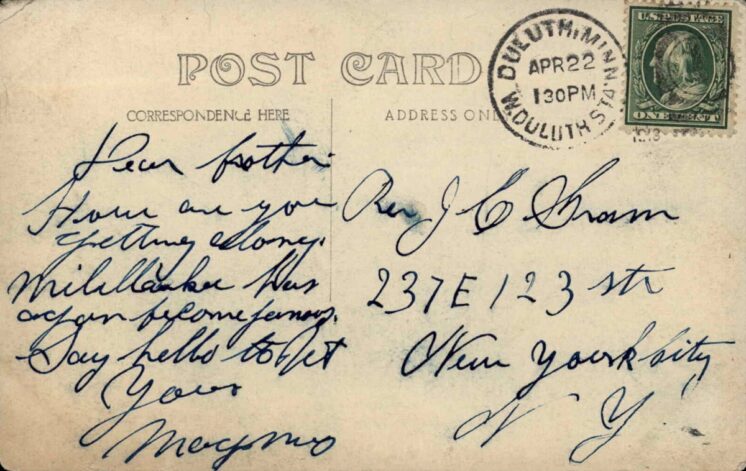 POST CARD
CORRESPONDENCE HERE
ADDRESS ONL
DULUTH, MINN.
APR 22
130PM
W. DULUTH STA.
U.S. POSTAGE
ONE CENT
Dear brother
How are you
getting along.
Milwaukee has
again become famous.
Say hello to
Yours
Rev J C
237 E 123 str
New Yourk City
N Y